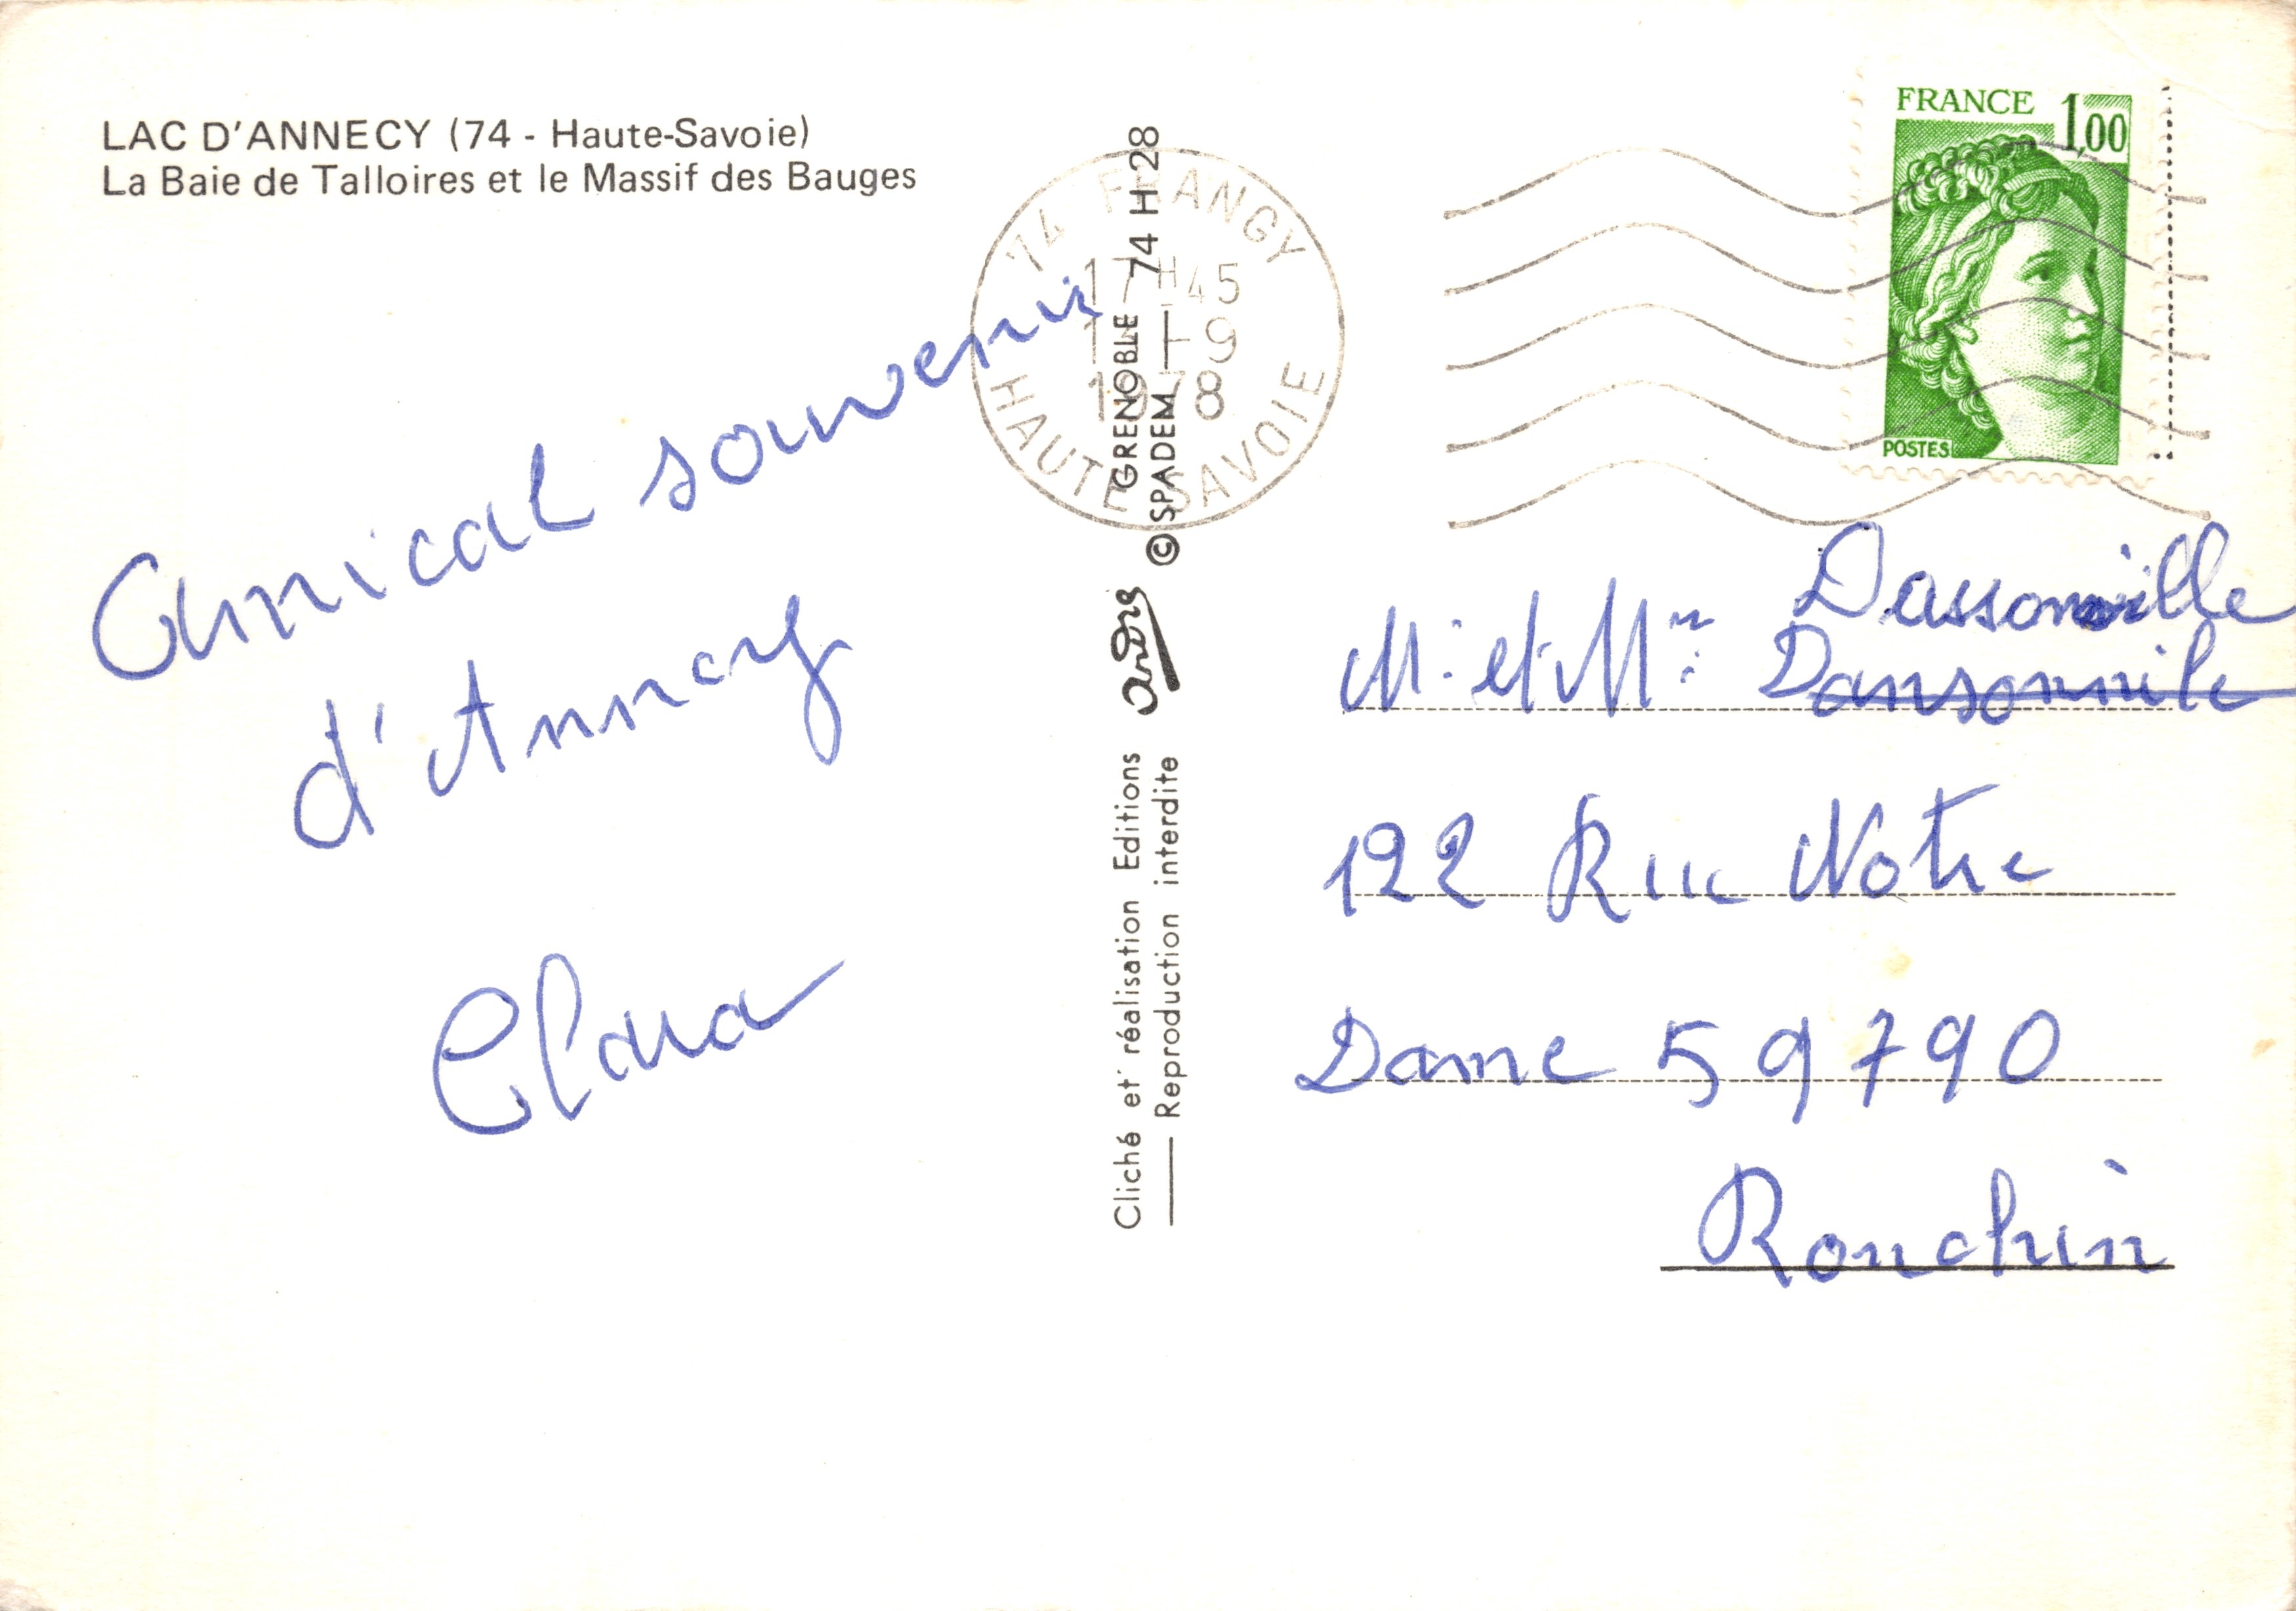 LAC D'ANNECY (74 - Haute-Savoie)
La Baie de Talloires et le Massif des Bauges
Amical souvenir
d'Annecy
Clara
Cliché et réalisation Editions andré GRENOBLE 74 H 28
Reproduction interdite © SPADEM
74 FRANGY
17H45
1-9
1978
HAUTE SAVOIE
FRANCE 1,00
POSTES
Dassonville
M. et Mme Dansonnile
122 Rue Notre
Dame 59790
Ronchin